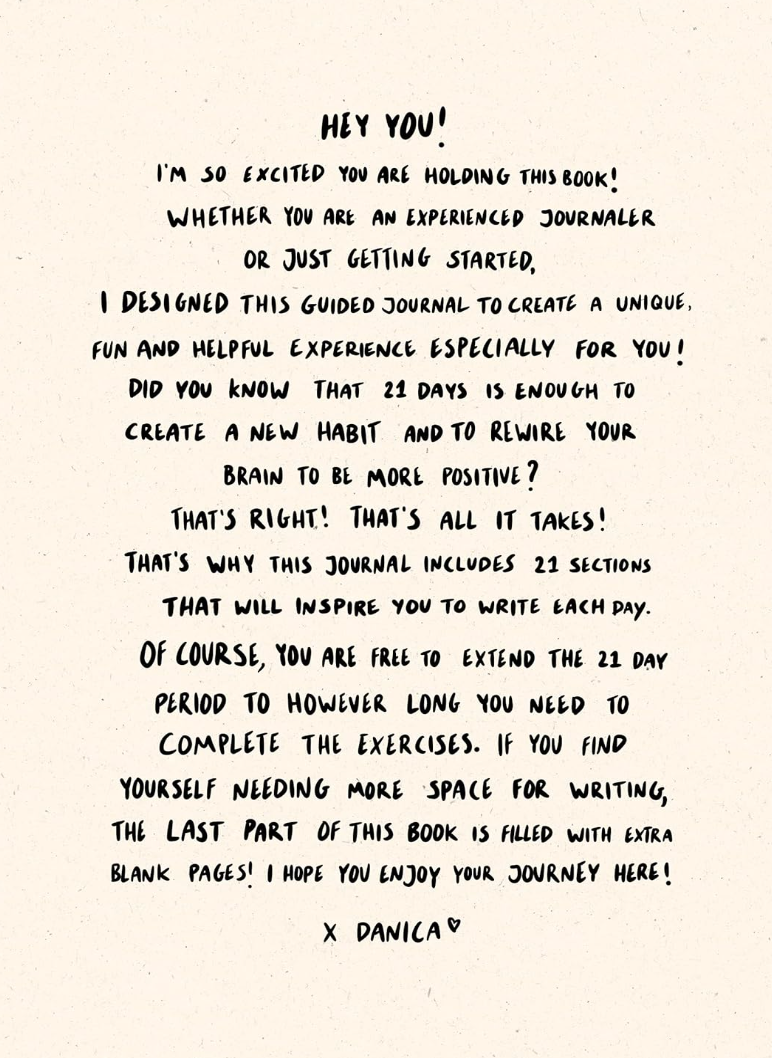 HEY YOU!
I'M SO EXCITED YOU ARE HOLDING THIS BOOK!
WHETHER YOU ARE AN EXPERIENCED JOURNALER
OR JUST GETTING STARTED,
I DESIGNED THIS GUIDED JOURNAL TO CREATE A UNIQUE,
FUN AND HELPFUL EXPERIENCE ESPECIALLY FOR YOU!
DID YOU KNOW THAT 21 DAYS IS ENOUGH TO
CREATE A NEW HABIT AND TO REWIRE YOUR
BRAIN TO BE MORE POSITIVE?
THAT'S RIGHT! THAT'S ALL IT TAKES!
THAT'S WHY THIS JOURNAL INCLUDES 21 SECTIONS
THAT WILL INSPIRE YOU TO WRITE EACH DAY.
OF COURSE, YOU ARE FREE TO EXTEND THE 21 DAY
PERIOD TO HOWEVER LONG YOU NEED TO
COMPLETE THE EXERCISES. IF YOU FIND
YOURSELF NEEDING MORE SPACE FOR WRITING,
THE LAST PART OF THIS BOOK IS FILLED WITH EXTRA
BLANK PAGES! I HOPE YOU ENJOY YOUR JOURNEY HERE!
X DANICA ♡